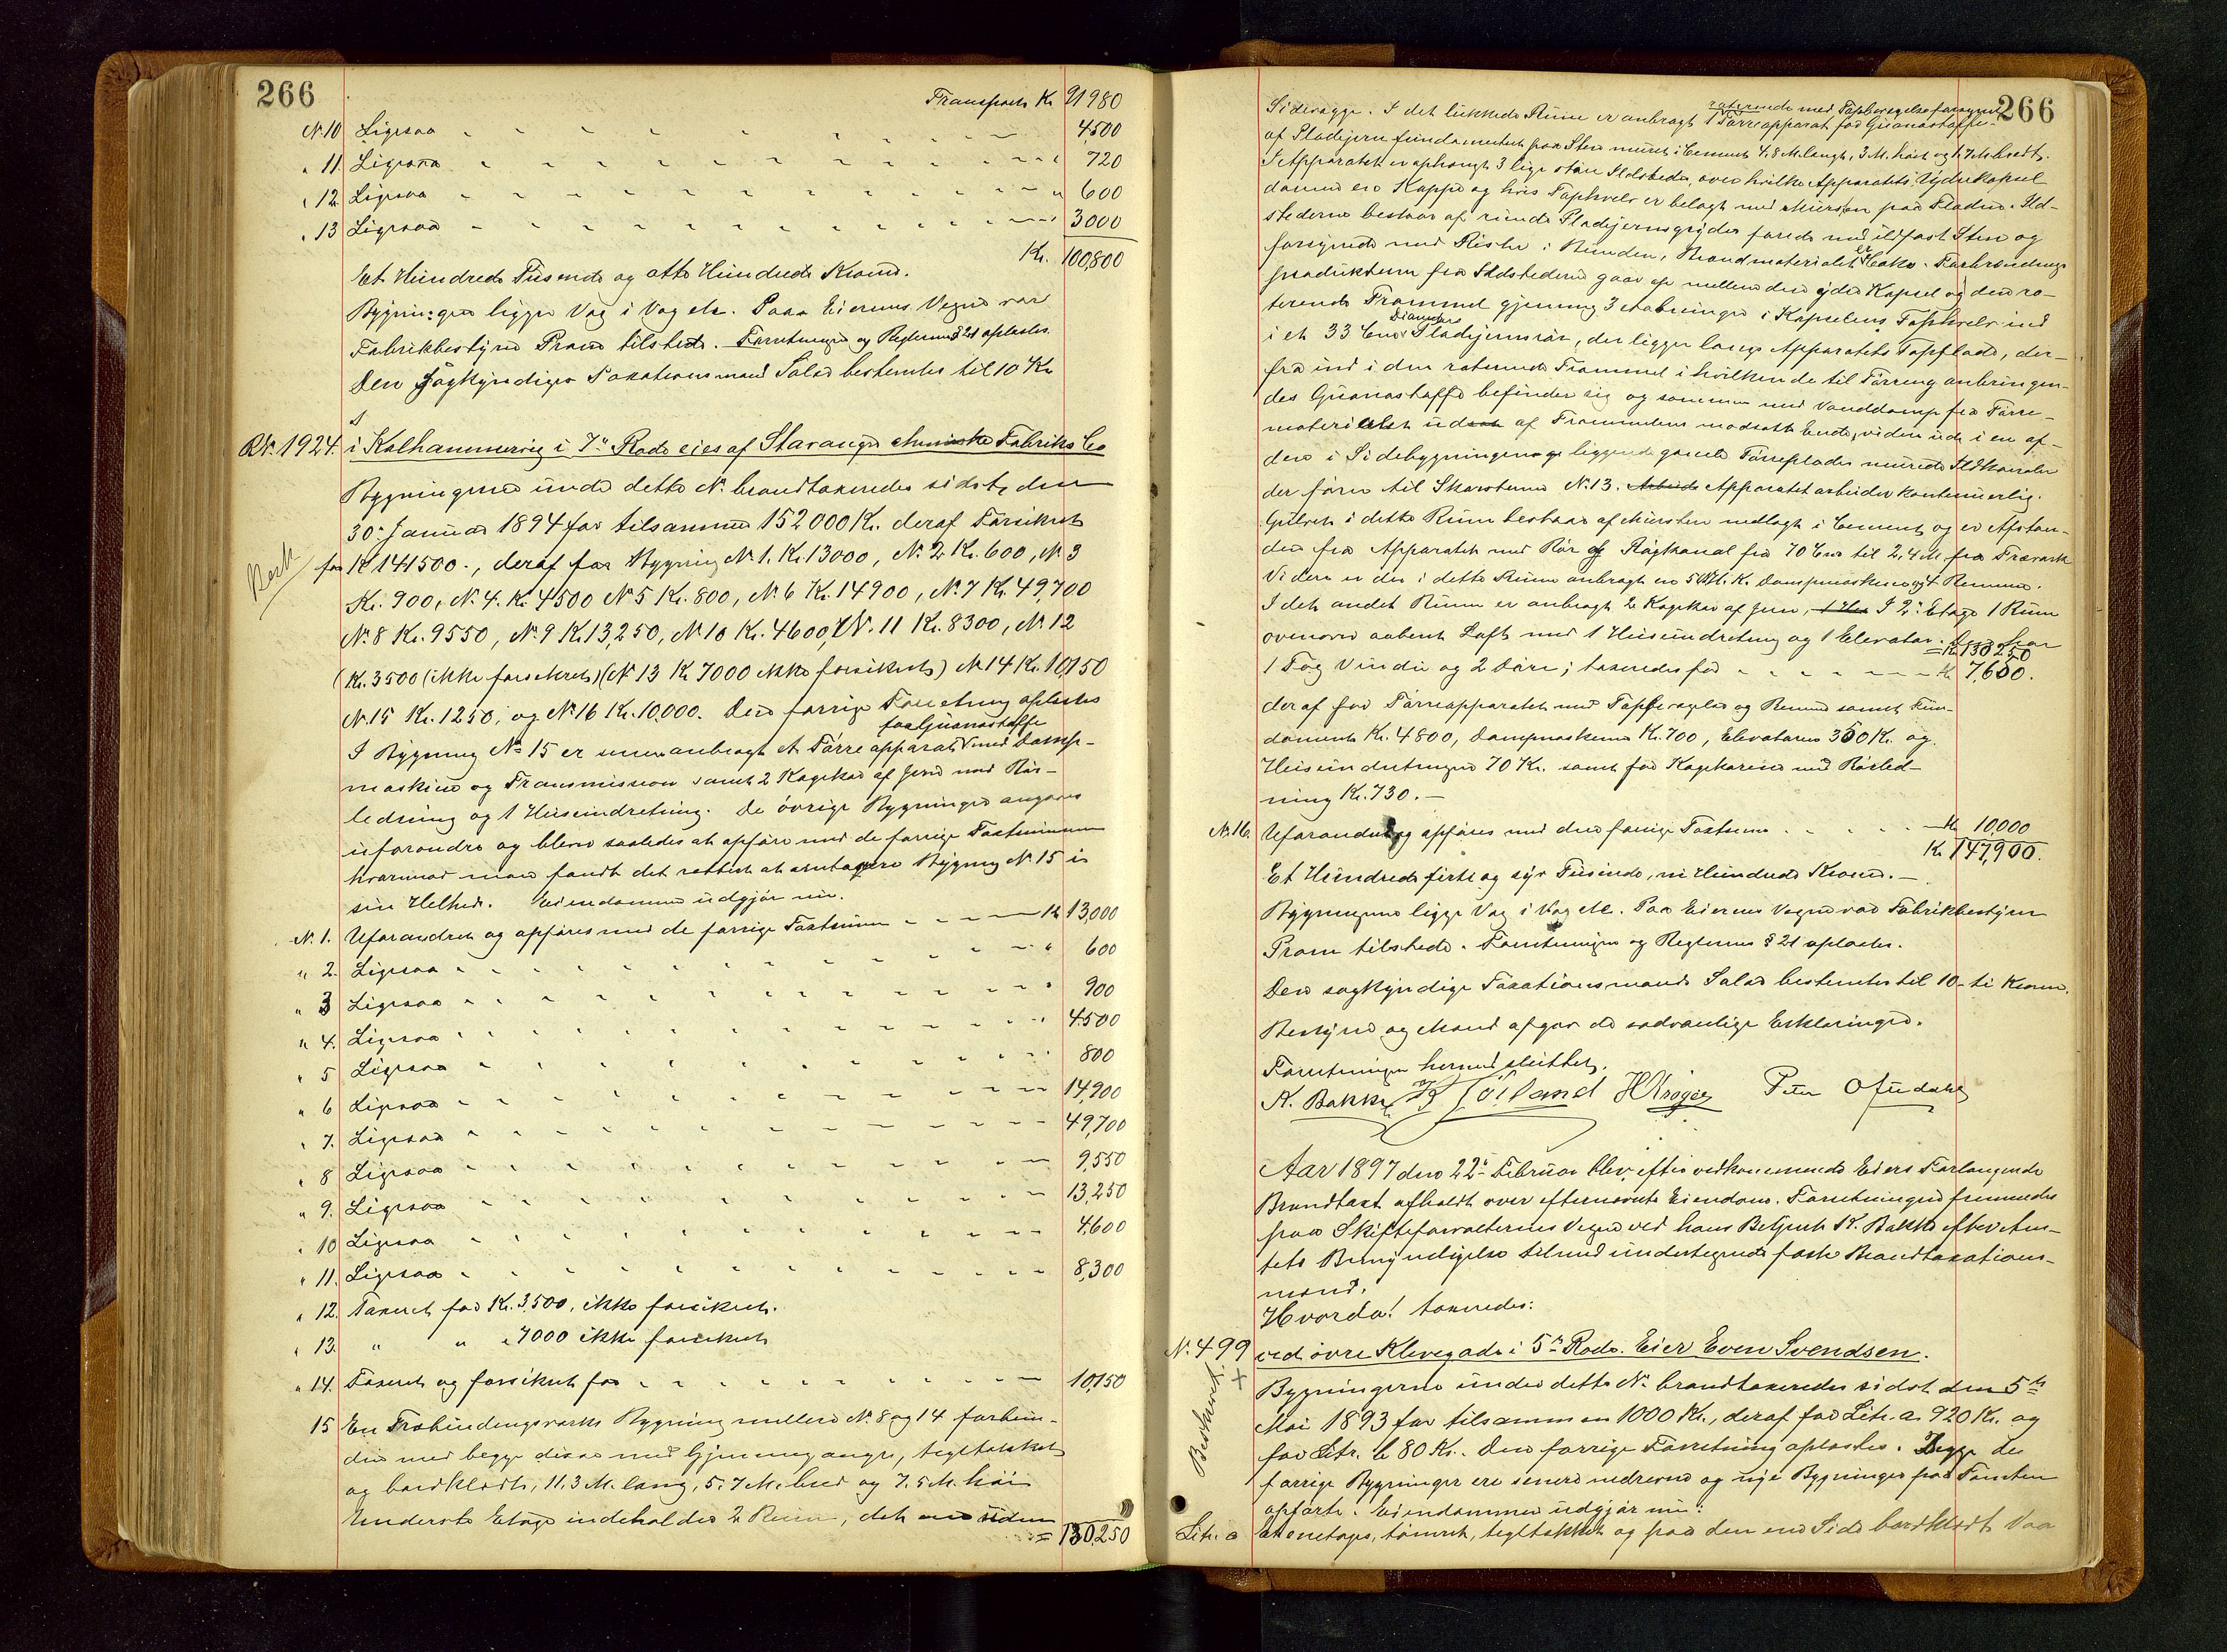 266
Transport Kr. 91980
No. 10 Ligesaa - - - - 4,500
" 11. Ligesaa - - - - 720
" 12 Ligesaa - - - - 600
" 13 Ligesaa - - - - 3000
Kr. 100,800
Et Hundrede Tusende og otte Hundrede Kroner.
Bygningen ligger Vag i Vag etc. Paa Eierens Vegne var
Fabrikbestyrer Pram tilstede. Forretningen og Reglernes § 21 oplæstes.
Den sagkyndige Taxationsmand Salær bestemtes til 10 Kr
RNo. 1924. i Kalhammervig i 7de Rode eies af Stavanger chemiske Fabriks Co
Bygningerne under dette No. brandtaxeredes sidst den
30te Januar 1894 for tilsammen 152000 Kr. deraf Forsikret
Besk
for Kr 141500., deraf for Bygning No. 1. Kr. 13000, No. 2 Kr. 600, No 3
Kr. 900, No. 4. Kr. 4500 No 5 Kr. 800, No. 6 Kr. 14900, No. 7 Kr. 49,700
No. 8 Kr. 9550, No. 9 Kr. 13,250, No 10 Kr. 4600, No. 11 Kr. 8300, No. 12
(Kr. 3500 (ikke forsikret) (No 13 Kr 7000 ikke forsikret) No 14 Kr. 10,150
No. 15 Kr. 1250, og No 16 Kr. 10,000. Den forrige Forretning oplæstes
for Guanostoffe
I Bygning No 15 er senere anbragt et Tørreapparat med Damp-
maskine og Transmission samt 2 Kogekar af Jern med Rør-
ledning og 1 Heiseindretning. De øvrige Bygninger angaves
uforandre og bleve saaledes at opføre med de forrige Taxtsummer
hvorimod man fandt det rettest at omtaxere Bygning No. 15 i
sin Helhed. Eiendommen udgjør nu.
No. 1. Uforandret og opføres med de forrige Taxtsum - - - - Kr 13,000
" 2. Ligesaa - - - - " 600
" 3 Ligesaa - - - - " 900
" 4. Ligesaa - - - - 4500
" 5 Ligesaa - - - - 800
" 6 Ligesaa - - - - 14,900
" 7. Ligesaa - - - - 49,700
" 8 Ligesaa - - - - 9,550
" 9. Ligesaa - - - - 13,250
" 10 Ligesaa - - - - 4,600
" 11. Ligesaa - - - - 8,300
" 12. Taxeret for Kr. 3,500, ikke forsikret.
" 13. " " " 7000 ikke forsikret
" 14. Taxeret og forsikret for - - - - 10,150
15 En Træbindingsværks Bygning mellem No. 8 og 14 forbun-
den med begge disse med Gjennemgange, tegltækket
og bordklædt, 11,3 M. lang, 5,7 M. bred og 7,5 M. høi
Underste Etage indeholder 2 Rum, det ene uden
= 130,250
266
roterende med Tapbevægelse forsynet
Sidevægge. I det lukkede Rum er anbragt 1 Tørreapparat for Guanostoffe-
af Pladejern fundamentert paa Sten muret i Cement 4,8 M. langt, 3 M. høit og 1,7 M. bredt.
I Apparatet er ophængt 3 lige store Ildsteder, over hvilke Apparatets Ydrekapsel
danner en Kappe og hvis Taphvelv er belagt med Mursten paa Fladen. Ild-
stederne bestaar af runde Pladejernsgryder forede med ildfast Sten og
forsynede med Riste i Bunden, Brandmaterialet er Coks. Forbrændings
produkterne fra Ildstederne gaar op mellem den ydre Kapsel og den ro-
terende Trommel gjennem 3 Aabninger i Kapselens Taphvelv ind
Diameter
i et 33 Ctm Pladejernsrør, der ligger langs Apparatets Topflade, der-
fra ind i den roterende Trommel i hvilken de til Tørring anbringen-
des Guanostoffe befinder sig og sammen med Vanddamp fra Tørre-
materialet ud af Trommelens modsatte Ende, videre ud i en af-
dens i Sidebygningerne liggende gamle Tørreplader murede Ildkanaler
der fører til Skorstene No. 13. Apparatet arbeider kontinuerlig.
Gulvet i dette Rum bestaar af Mursten nedlagt i Cement og er Afstan-
den fra Apparatet med Rør og Røgkanal fra 70 Ctm til 2,4 M. fra Træværk
Videre er der i dette Rum anbragt en 5 H. K. Dampmaskine og 4 Remme.
I det andet Rum er anbragt 2 Kogekar af Jern, I 2. Etage 1 Rum
ovenover aabent Loft med 1 Heiseindretning og 1 Elevator.
= Kr 130,250
1 Fag Vindu og 2 Døre; taxeredes for - - - - Kr 7,650.
deraf for Tørreapparatet med Tap og Remme samt Fun-
dament Kr. 4800, Dampmaskinen Kr. 700, Elevatoren 350 Kr. og
Heiseindretningen 70 Kr. samt for Kogekarene med Rørled-
ning Kr. 730.-
No. 16. Uforandret og opføres med den forrige Taxtsum - - - - Kr 10,000
Kr 147,900.
Et Hundrede firti og syv Tusinde, ni Hundrede Kroner.-
Bygningerne ligge Vag i Vag etc. Paa Eierens Vegne var Fabrikbestyrer
Pram tilstede. Forretningen og Reglernes § 21 oplæstes.
Den sagkyndige Taxationsmands Salær bestemtes til 10- ti Kroner.
Bestyrer og Mænd afgav de sædvanlige Erklæringer.
Forretningen hermed sluttet.
K. Bakke Høiland HKrøger Peter Ofudahl
Aar 1897 den 22de Februar blev efter vedkommende Eiers Forlangende
Brandtaxt afholdt over efternævnte Eiendom. Forretningen fremmedes
paa Skifteforvalterens Vegne ved hans Betjent K. Bakke efter Am-
tets Bemyndigelse tilmed undertegnede faste Brandtaxations-
mænd.
Hvorda! taxeredes:
No. 499 ved øvre Klevegade i 5te Rode. Eier Even Svendsen.
Beskrevet. +
Bygningerne under dette No. brandtaxeredes sidst den 5te
Mai 1893 for tilsammen 1000 Kr., deraf for Litr. a 920 Kr. og
for Litr. b 80 Kr. Den forrige Forretning oplæstes. Begge de
forrige Bygninger ere senere nedrevne og nye Bygninger paa Tomten
opførte. Eiendommen udgjør nu:
Litr. a et enetages, tømret, tegltækket og paa den ene Side bordklædt Vaa